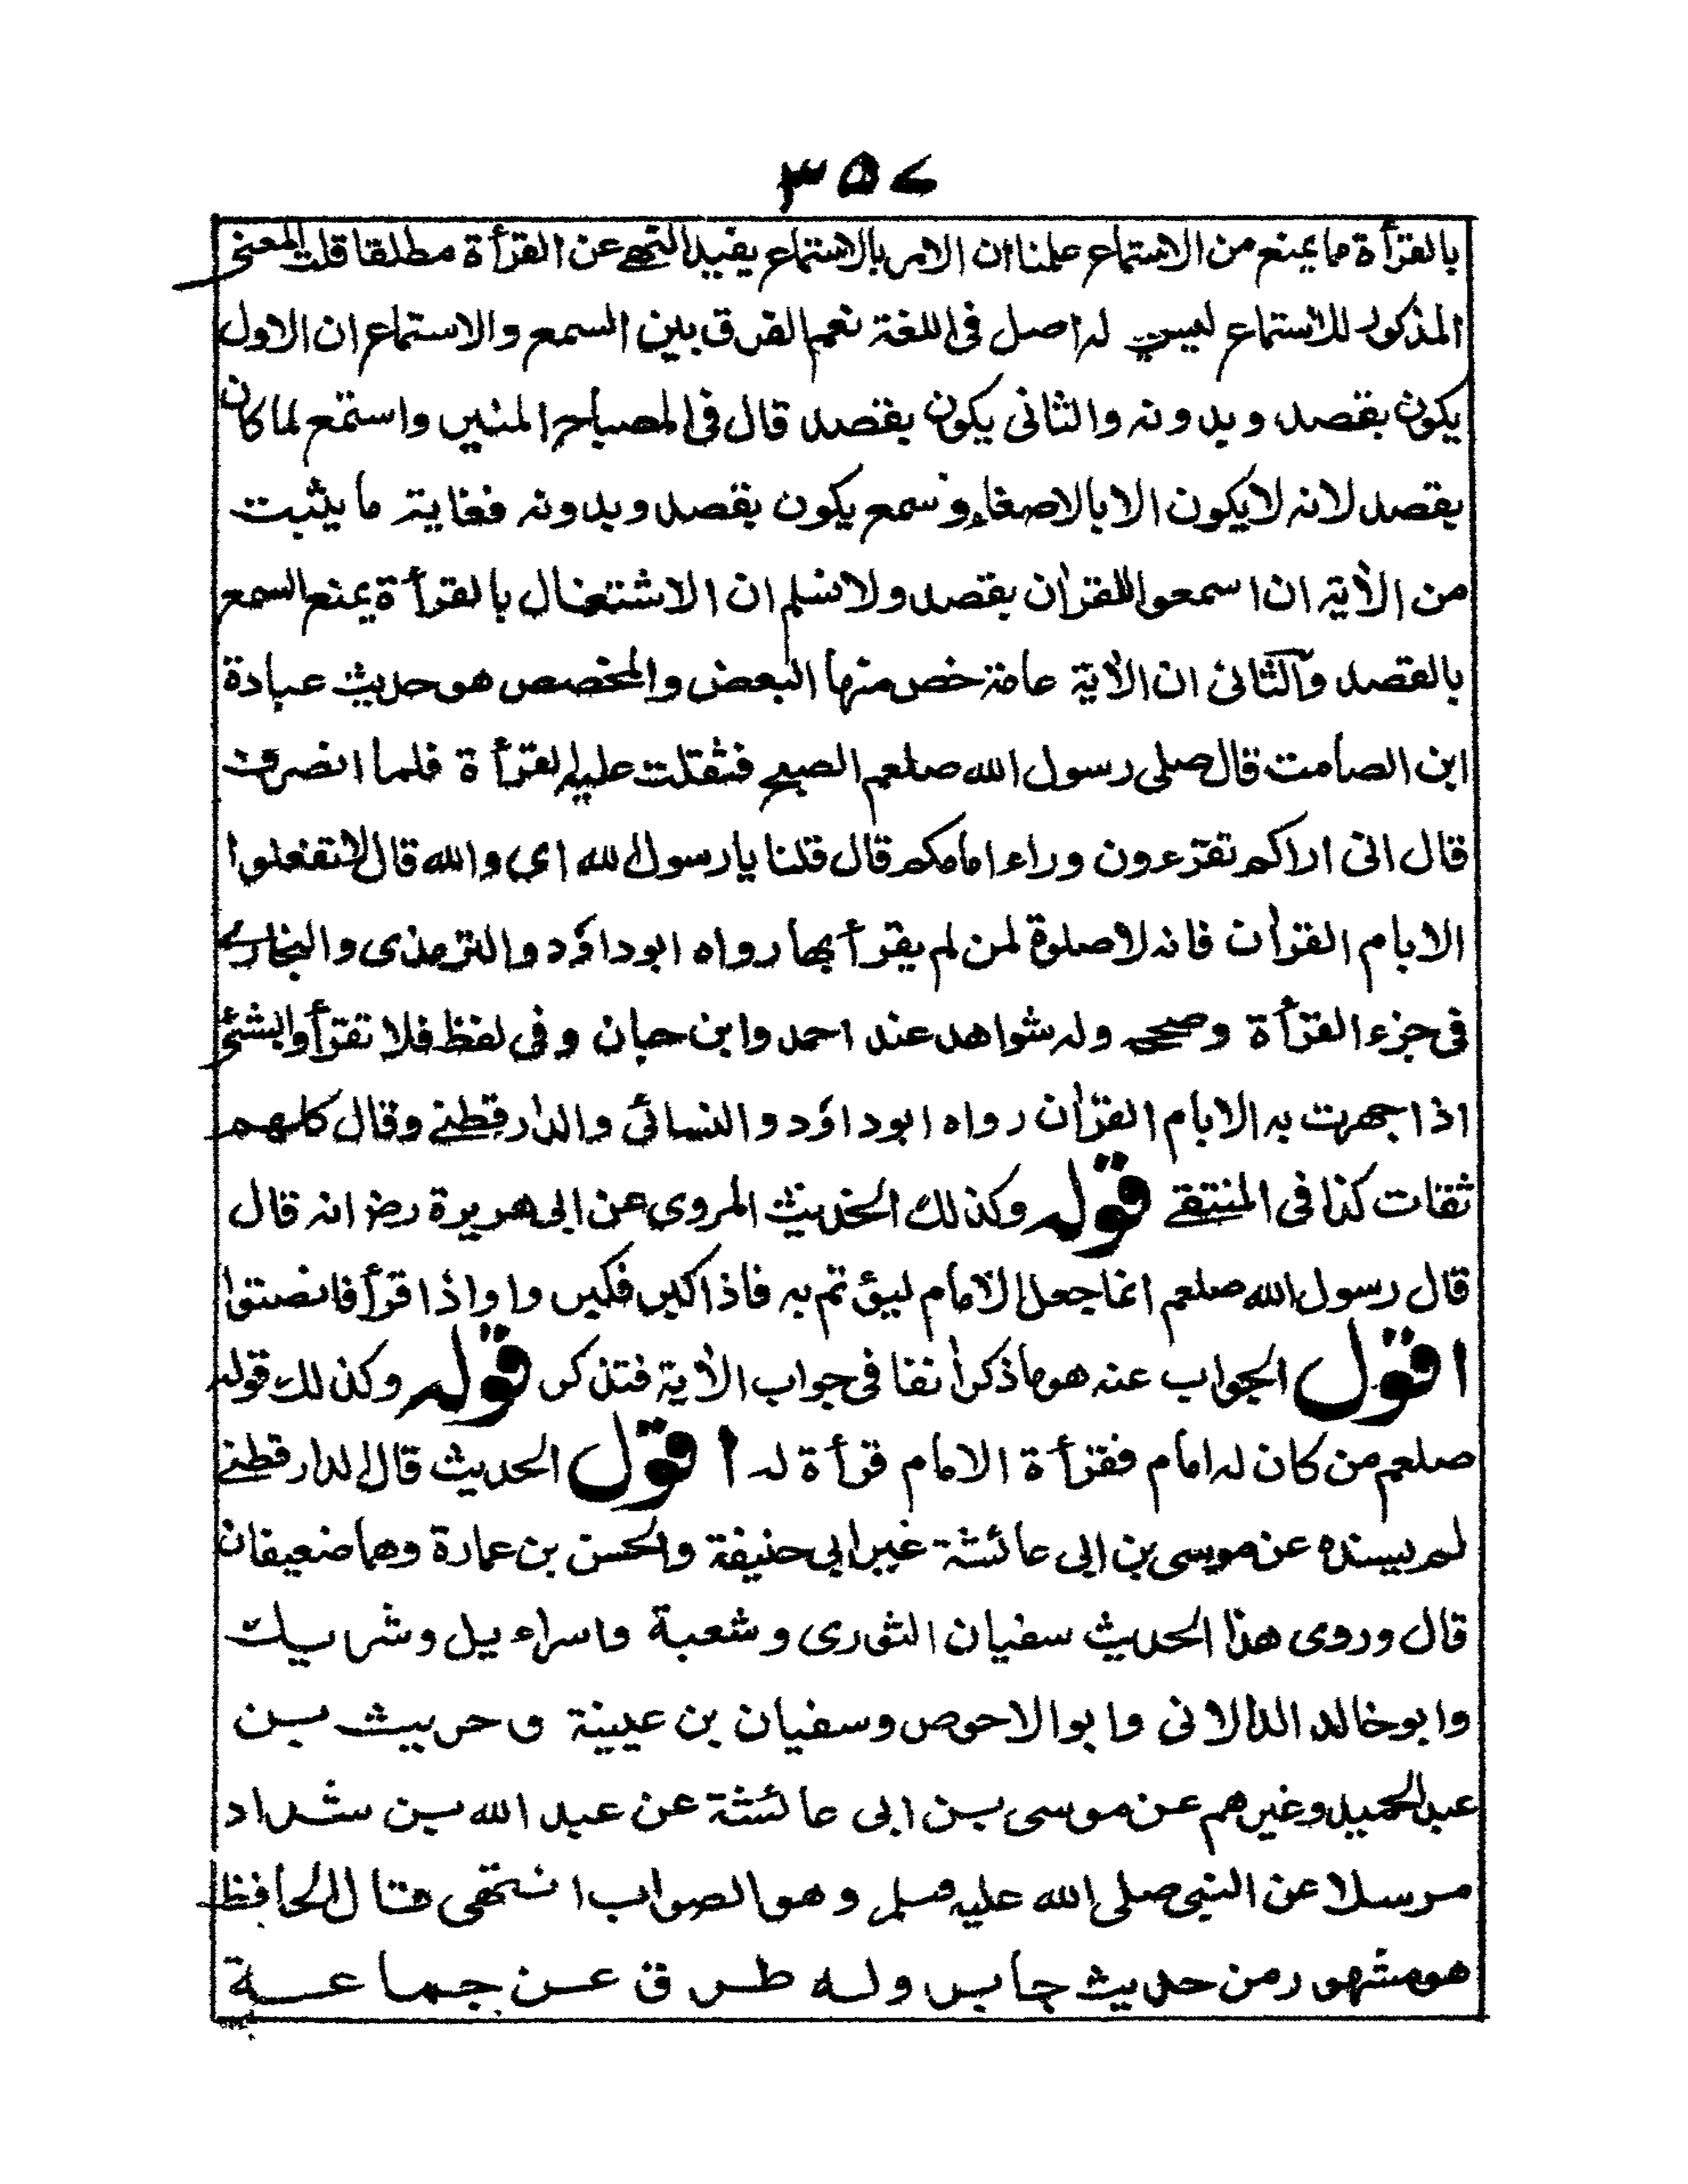 ٣٥٧
بالقرأة مما يمنع من الاستماع علمنا ان الامر بالاستماع يفيد النهي عن القرأة مطلقا قلت المعنى
المذكور للاستماع ليست له اصل فى اللغة نعم الفرق بين السمع والاستماع ان الاول
يكون بقصد وبدونه والثانى يكون بقصد قال فى المصباح المنير واستمع لما كان
بقصد لانه لايكون الا بالاصغاء وسمع يكون بقصد وبدونه فغاية ما يثبت
من الأية ان اسمعوا للقرأن بقصد ولا نسلم ان الاشتغال بالقرأة يمنع السمع
بالقصد والثانى ان الأية عامة خص منها البعض والمخصص هو حديث عبادة
ابن الصامت قال صلى رسول الله صلعم الصبح فثقلت عليه القرأة فلما انصرف
قال انى اراكم تقرءون وراء امامكم قال قلنا يا رسول الله اى والله قال لا تفعلوا
الا بام القرأن فانه لا صلوة لمن لم يقرأ بها رواه ابو داؤد والترمذى والبخارى
فى جزء القرأة وصححه وله شواهد عند احمد وابن حبان وفى لفظ فلا تقرأوا بشئ
اذا جهرت به الا بام القرأن رواه ابو داؤد والنسائى والدارقطنى وقال كلهم
ثقات كذا فى المنتقى قوله وكذلك الحديث المروى عن ابى هريرة رض انه قال
قال رسول الله صلعم انما جعل الامام ليؤتم به فاذا كبر فكبروا واذا قرأ فانصتوا
اقول الجواب عنه هو ما ذكر أنفا فى جواب الأية فتذكر قوله وكذلك قوله
صلعم من كان له امام فقرأة الامام قرأة له اقول الحديث قال الدارقطنى
لم يسنده عن موسى بن ابى عائشة غير ابى حنيفة والحسن بن عمارة وهما ضعيفان
قال وروى هذا الحديث سفيان الثورى وشعبة واسراءيل وشريك
وابو خالد الدالانى وابو الاحوص وسفيان بن عيينة وحريث بن
عبد الحميد وغيرهم عن موسى بن ابى عائشة عن عبد الله بن شداد
مرسلا عن النبى صلى الله عليه وسلم وهو الصواب انتهى قال الحافظ
هو مشهور من حديث جابر وله طرق عن جماعة